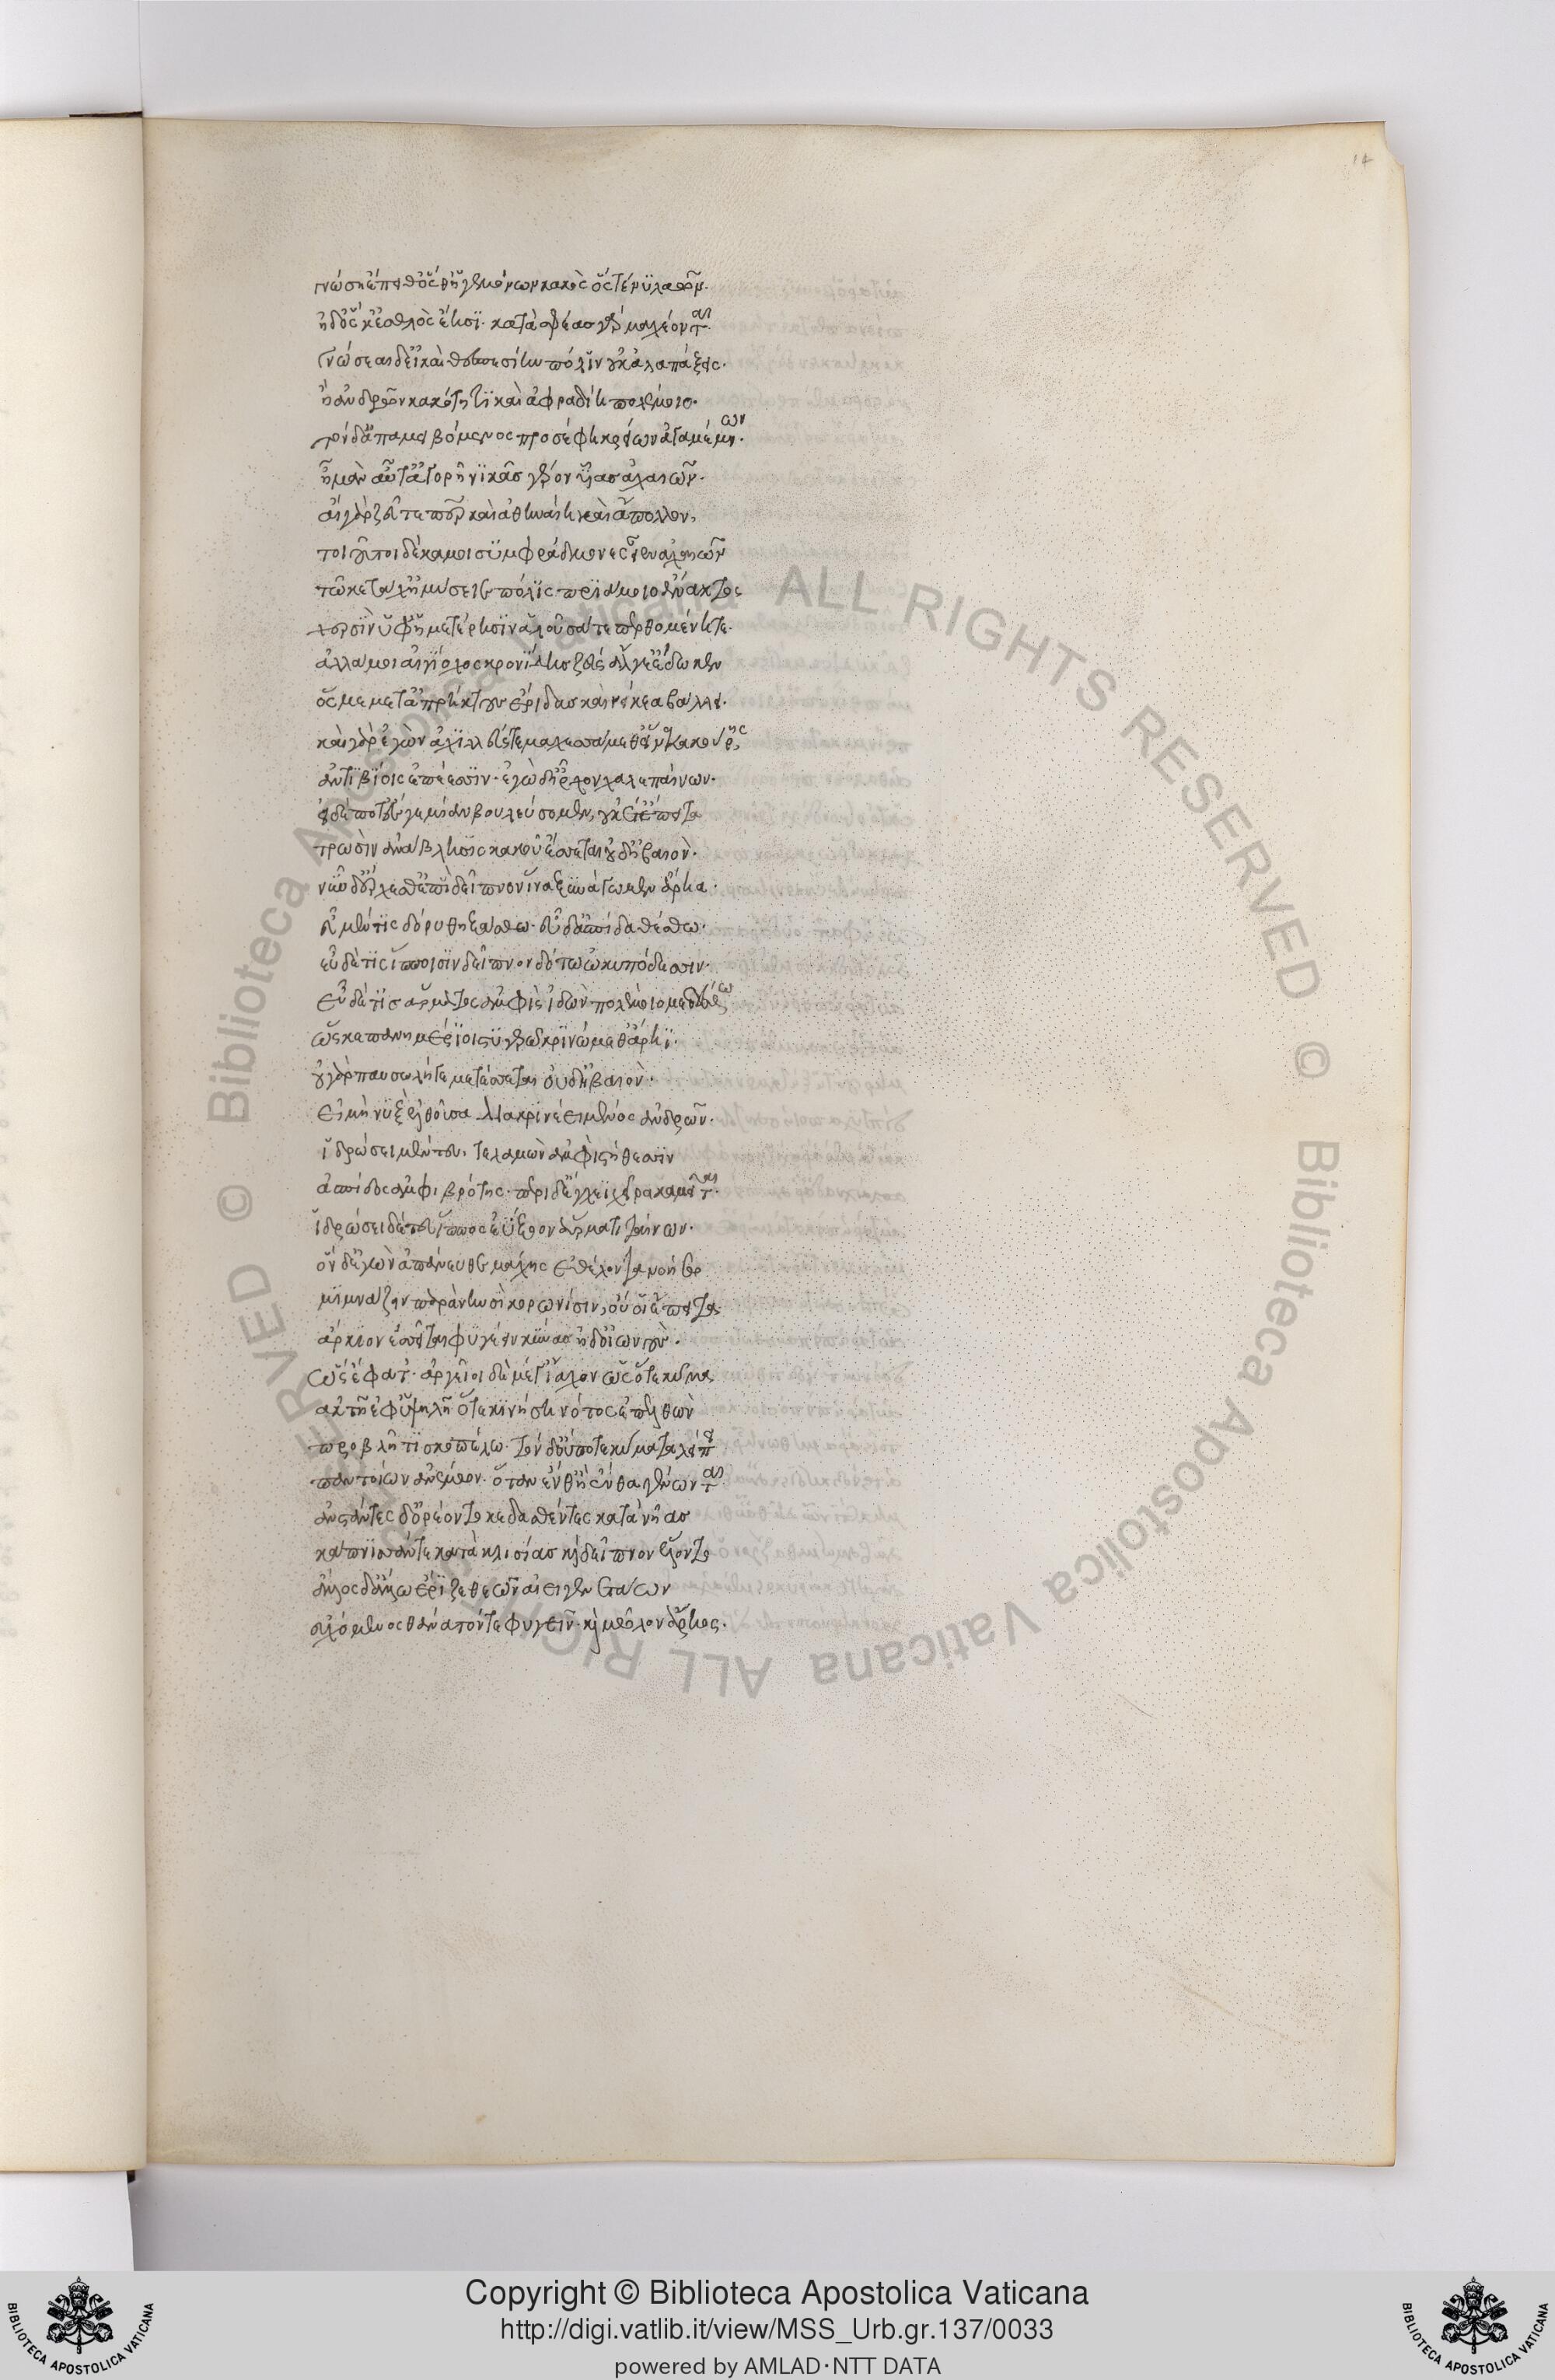 14
γνώση ἔπειθ' ὅς θ' ἡγεμόνων κακὸς ὅς τέ νυ λαῶν.
ἠδ' ὅς κ' ἐσθλὸς ἔησι. κατὰ σφέας γὰρ μαχέονται.
γνώσεαι δ' εἰ καὶ θεσπεσίη πόλιν οὐκ ἀλαπάξεις.
ἢ ἀνδρῶν κακότητι καὶ ἀφραδίη πολέμοιο.
τὸν δ' ἀπαμειβόμενος προσέφη κρείων ἀγαμέμνων.
ἦ μὰν αὖτ' ἀγορῇ νικᾷς γέρον υἷας ἀχαιῶν.
αἲ γὰρ ζεῦ τε πάτερ καὶ ἀθηναίη καὶ ἄπολλον,
τοιοῦτοι δέκα μοι συμφράδμονες εἶεν ἀχαιῶν
τῶ κε τάχ' ἠμύσειε πόλις πριάμοιο ἄνακτος
χερσὶν ὑφ' ἡμετέρησιν ἁλοῦσά τε περθομένη τε.
ἀλλά μοι αἰγίοχος κρονίδης ζεὺς ἄλγε' ἔδωκεν
ὅς με μετ' ἀπρήκτους ἔριδας καὶ νείκεα βάλλει.
καὶ γὰρ ἐγὼν ἀχιλλεύς τε μαχεσσάμεθ' εἵνεκα κούρης
ἀντιβίοις ἐπέεσσιν. ἐγὼ δ' ἦρχον χαλεπαίνων.
εἰ δέ ποτ' ἔς γε μίαν βουλεύσομεν, οὐκέτ' ἔπειτα
τρωσὶν ἀνάβλησις κακοῦ ἔσσεται οὐδ' ἠβαιὸν.
νῦν δ' ἔρχεσθ' ἐπὶ δεῖπνον ἵνα ξυνάγωμεν ἄρηα.
εὖ μέν τις δόρυ θηξάσθω. εὖ δ' ἀσπίδα θέσθω.
εὖ δέ τις ἵπποισιν δεῖπνον δότω ὠκυπόδεσσιν.
εὖ δέ τις ἅρματος ἀμφὶς ἰδὼν πολέμοιο μεδέσθω
ὥς κε πανημέριοι στυγερῶ κρινώμεθ' ἄρηϊ.
οὐ γὰρ παυσωλή γε μετέσσεται οὐδ' ἠβαιὸν.
εἰ μὴ νὺξ ἐλθοῦσα διακρινέει μένος ἀνδρῶν.
ἱδρώσει μέν τευ, τελαμὼν ἀμφὶ στήθεσσιν
ἀσπίδος ἀμφιβρότης. περὶ δ' ἔγχεϊ χεῖρα καμεῖται.
ἱδρώσει δέ τευ ἵππος ἐΰξοον ἅρμα τιταίνων.
ὃν δέ κ' ἐγὼν ἀπάνευθε μάχης ἐθέλοντα νοήσω
μιμνάζειν παρὰ νηυσὶ κορωνίσιν, οὔ οἱ ἔπειτα
ἄρκιον ἐσσεῖται φυγέειν κύνας ἠδ' οἰωνούς.
ὣς ἔφατ'. ἀργεῖοι δὲ μέγ' ἴαχον ὡς ὅτε κῦμα
ἀκτῇ ἐφ' ὑψηλῇ ὅτε κινήση νότος ἐπελθὼν
προβλῆτι σκοπέλω. τὸν δ' οὔποτε κύματα λείπει
παντοίων ἀνέμων. ὅταν ἔνθ' ἢ ἔνθα γένωνται.
ἀνστάντες δ' ὀρέοντο κεδασθέντες κατὰ νῆας
κάπνισσάν τε κατὰ κλισίας καὶ δεῖπνον ἕλοντο
ἄλλος δ' ἄλλω ἔριζε θεῶν αἰειγενετάων
εὐχόμενος θάνατόν τε φυγεῖν. καὶ μῶλον ἄρηος.
ALL RIGHTS RESERVED © Biblioteca Apostolica Vaticana
Copyright © Biblioteca Apostolica Vaticana
http://digi.vatlib.it/view/MSS_Urb.gr.137/0033
powered by AMLAD·NTT DATA
BIBLIOTECA APOSTOLICA VATICANA
BIBLIOTECA APOSTOLICA VATICANA